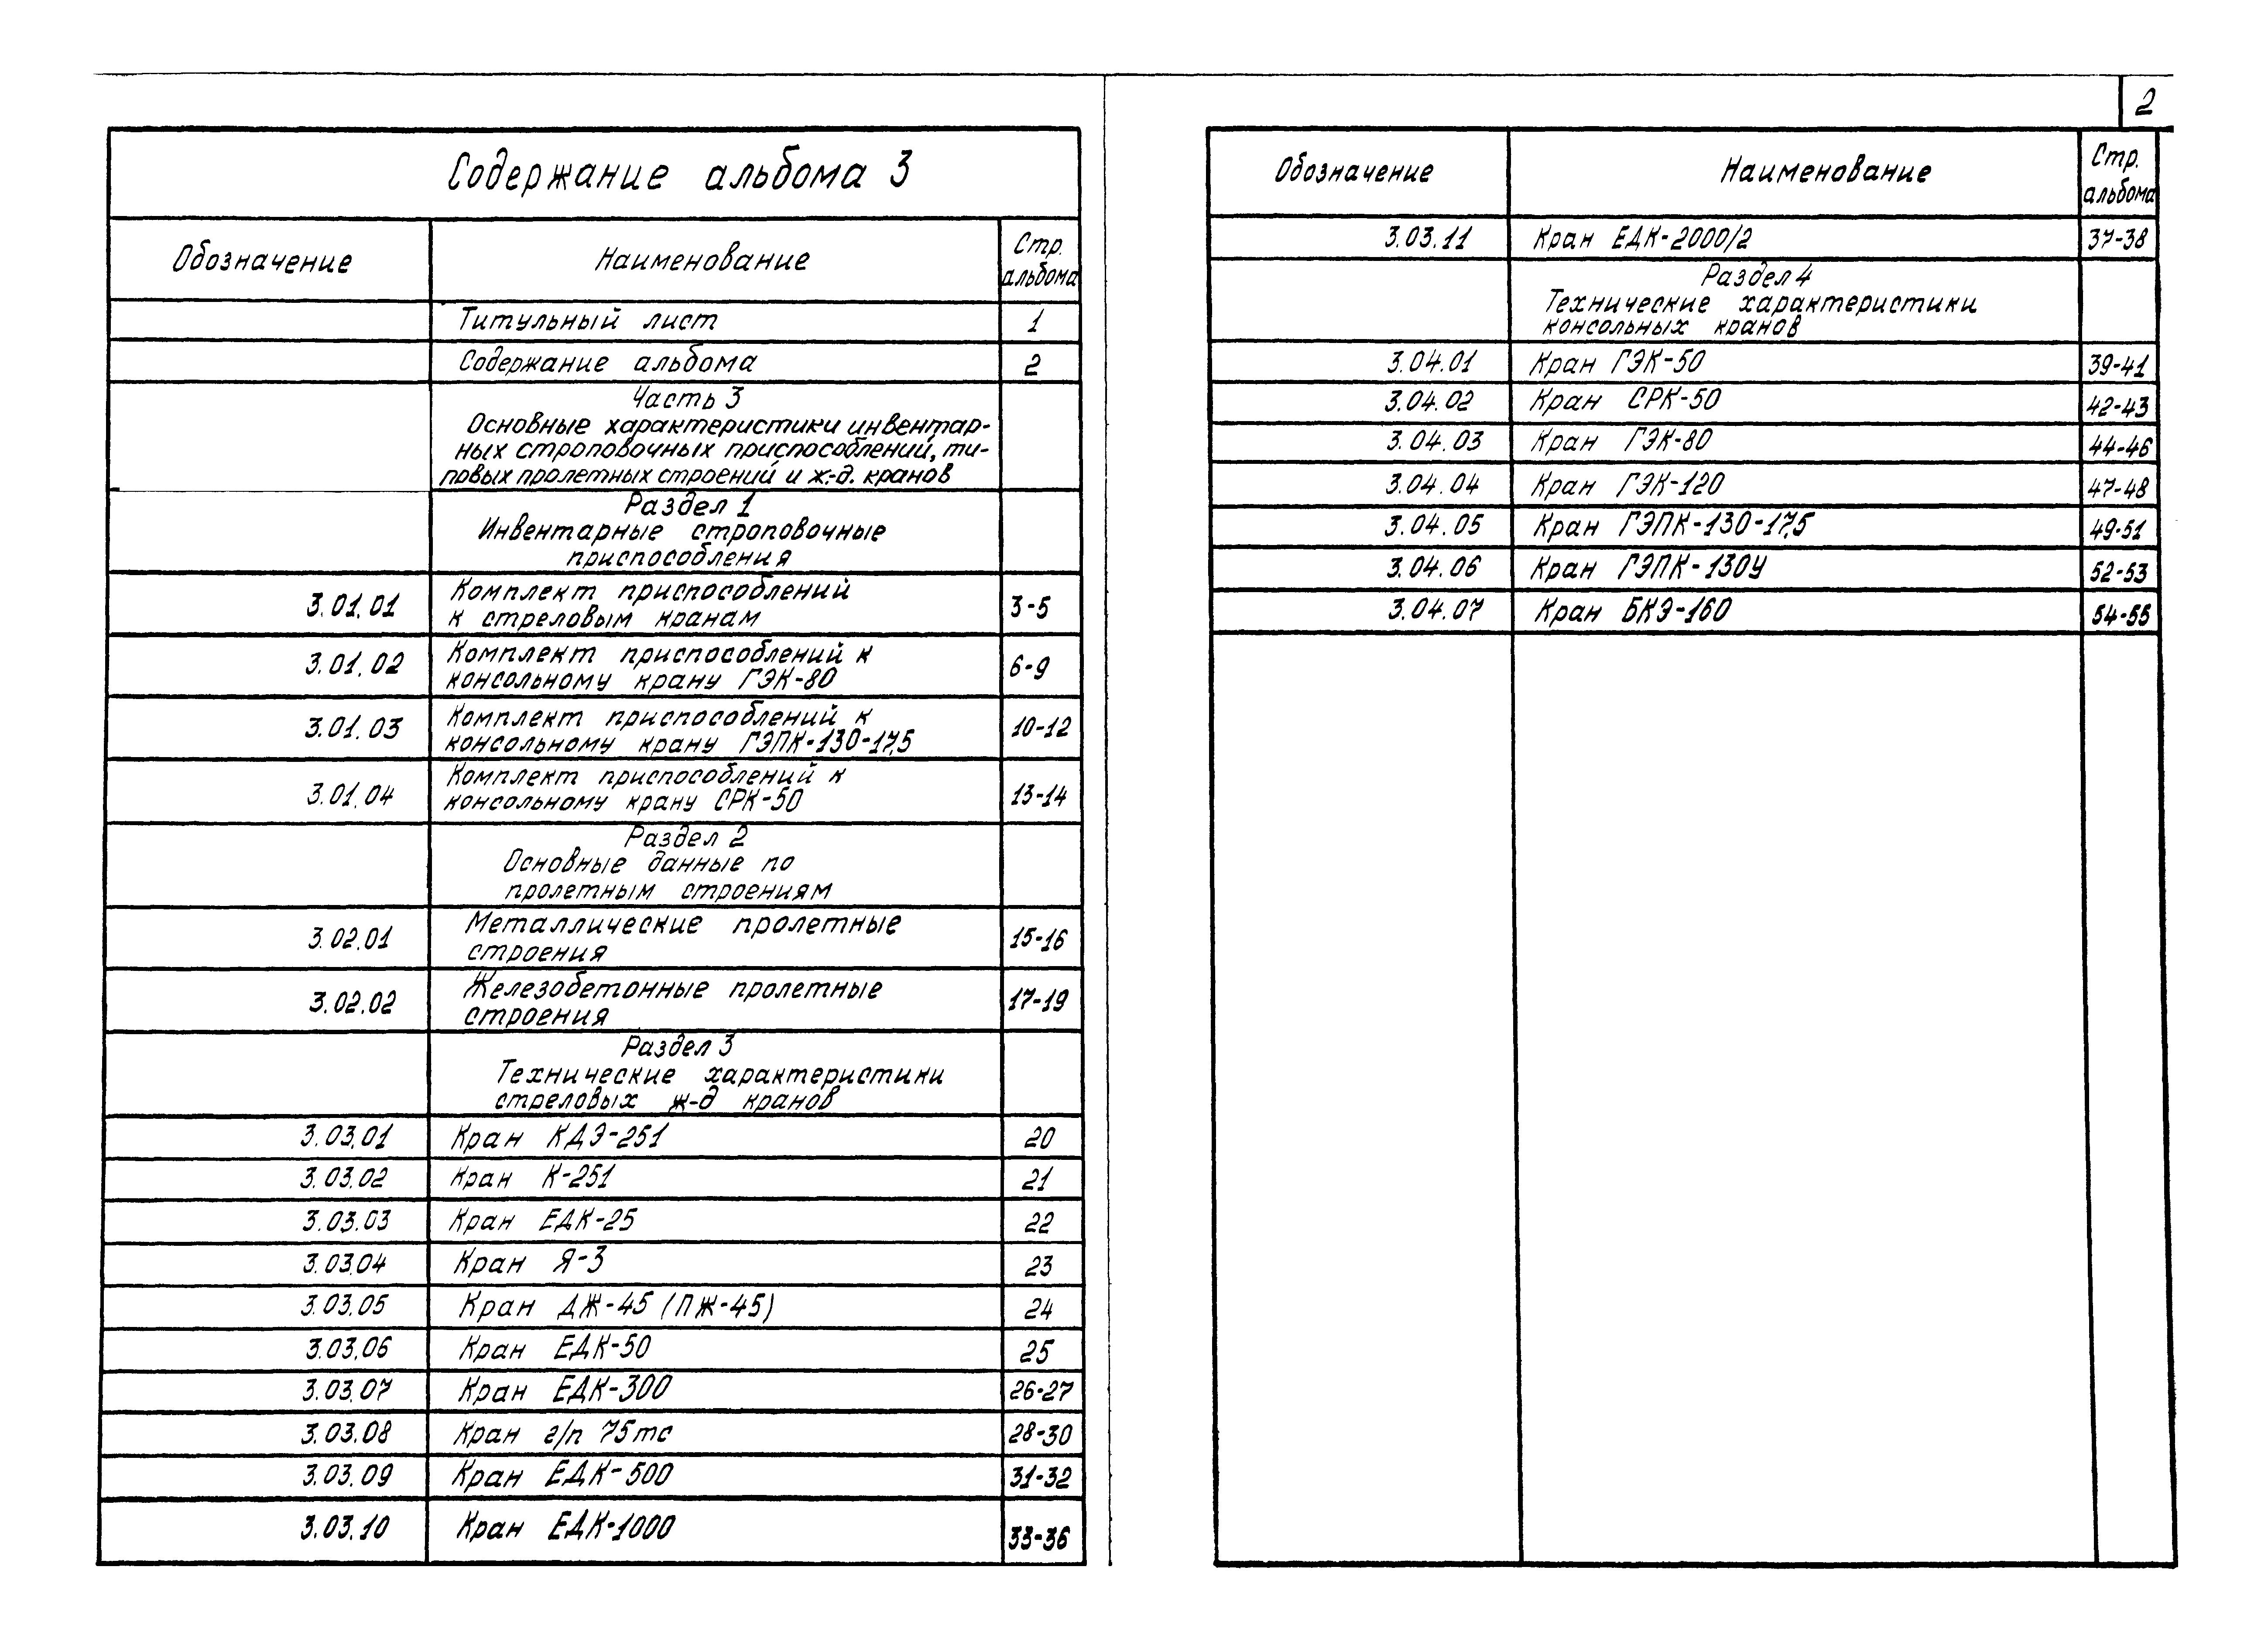 2
Содержание альбома 3
Обозначение Наименование Стр. альбома
Титульный лист 1
Содержание альбома 2
Часть 3
Основные характеристики инвентар-
ных строповочных приспособлений, ти-
повых пролетных строений и ж.-д. кранов
Раздел 1
Инвентарные строповочные
приспособления
3.01.01 Комплект приспособлений
к стреловым кранам 3-5
3.01.02 Комплект приспособлений к
консольному крану ГЭК-80 6-9
3.01.03 Комплект приспособлений к
консольному крану ГЭПК-130-17,5 10-12
3.01.04 Комплект приспособлений к
консольному крану СРК-50 13-14
Раздел 2
Основные данные по
пролетным строениям
3.02.01 Металлические пролетные
строения 15-16
3.02.02 Железобетонные пролетные
строения 17-19
Раздел 3
Технические характеристики
стреловых ж-д кранов
3.03.01 Кран КДЭ-251 20
3.03.02 Кран К-251 21
3.03.03 Кран ЕДК-25 22
3.03.04 Кран Я-3 23
3.03.05 Кран ДЖ-45 (ПЖ-45) 24
3.03.06 Кран ЕДК-50 25
3.03.07 Кран ЕДК-300 26-27
3.03.08 Кран г/п 75тс 28-30
3.03.09 Кран ЕДК-500 31-32
3.03.10 Кран ЕДК-1000 33-36
Обозначение Наименование Стр. альбома
3.03.11 Кран ЕДК-2000/2 37-38
Раздел 4
Технические характеристики
консольных кранов
3.04.01 Кран ГЭК-50 39-41
3.04.02 Кран СРК-50 42-43
3.04.03 Кран ГЭК-80 44-46
3.04.04 Кран ГЭК-120 47-48
3.04.05 Кран ГЭПК-130-17,5 49-51
3.04.06 Кран ГЭПК-130У 52-53
3.04.07 Кран БКЭ-160 54-55